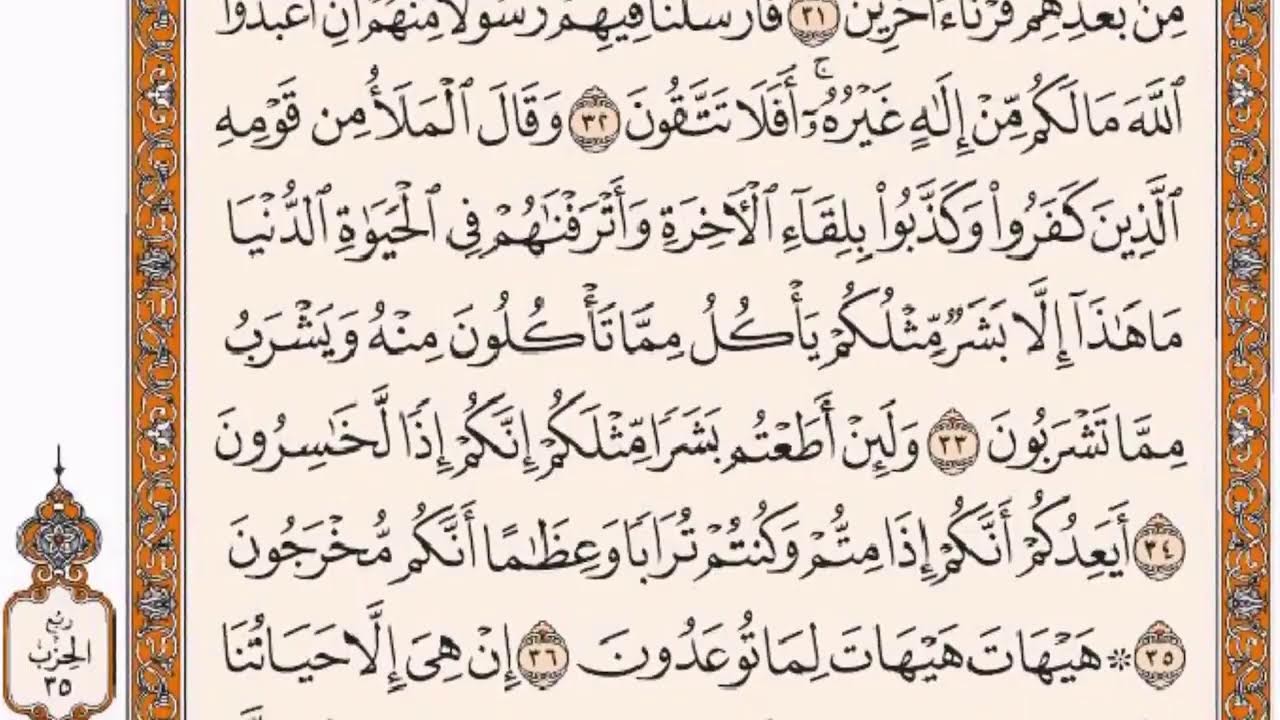 مِنۢ بَعْدِهِمْ قَرْنًا ءَاخَرِينَ ٣١ فَأَرْسَلْنَا فِيهِمْ رَسُولًا مِّنْهُمْ أَنِ ٱعْبُدُوا۟
ٱللَّهَ مَا لَكُم مِّنْ إِلَٰهٍ غَيْرُهُۥٓ ۚ أَفَلَا تَتَّقُونَ ٣٢ وَقَالَ ٱلْمَلَأُ مِن قَوْمِهِ
ٱلَّذِينَ كَفَرُوا۟ وَكَذَّبُوا۟ بِلِقَآءِ ٱلْأَخِرَةِ وَأَتْرَفْنَٰهُمْ فِى ٱلْحَيَوٰةِ ٱلدُّنْيَا
مَا هَٰذَآ إِلَّا بَشَرٌ مِّثْلُكُمْ يَأْكُلُ مِمَّا تَأْكُلُونَ مِنْهُ وَيَشْرَبُ
مِمَّا تَشْرَبُونَ ٣٣ وَلَئِنْ أَطَعْتُم بَشَرًا مِّثْلَكُمْ إِنَّكُمْ إِذًا لَّخَٰسِرُونَ
٣٤ أَيَعِدُكُمْ أَنَّكُمْ إِذَا مِتُّمْ وَكُنتُمْ تُرَابًا وَعِظَٰمًا أَنَّكُم مُّخْرَجُونَ
٣٥ * هَيْهَاتَ هَيْهَاتَ لِمَا تُوعَدُونَ ٣٦ إِنْ هِىَ إِلَّا حَيَاتُنَا
رُبْع
الحِزْب
٣٥